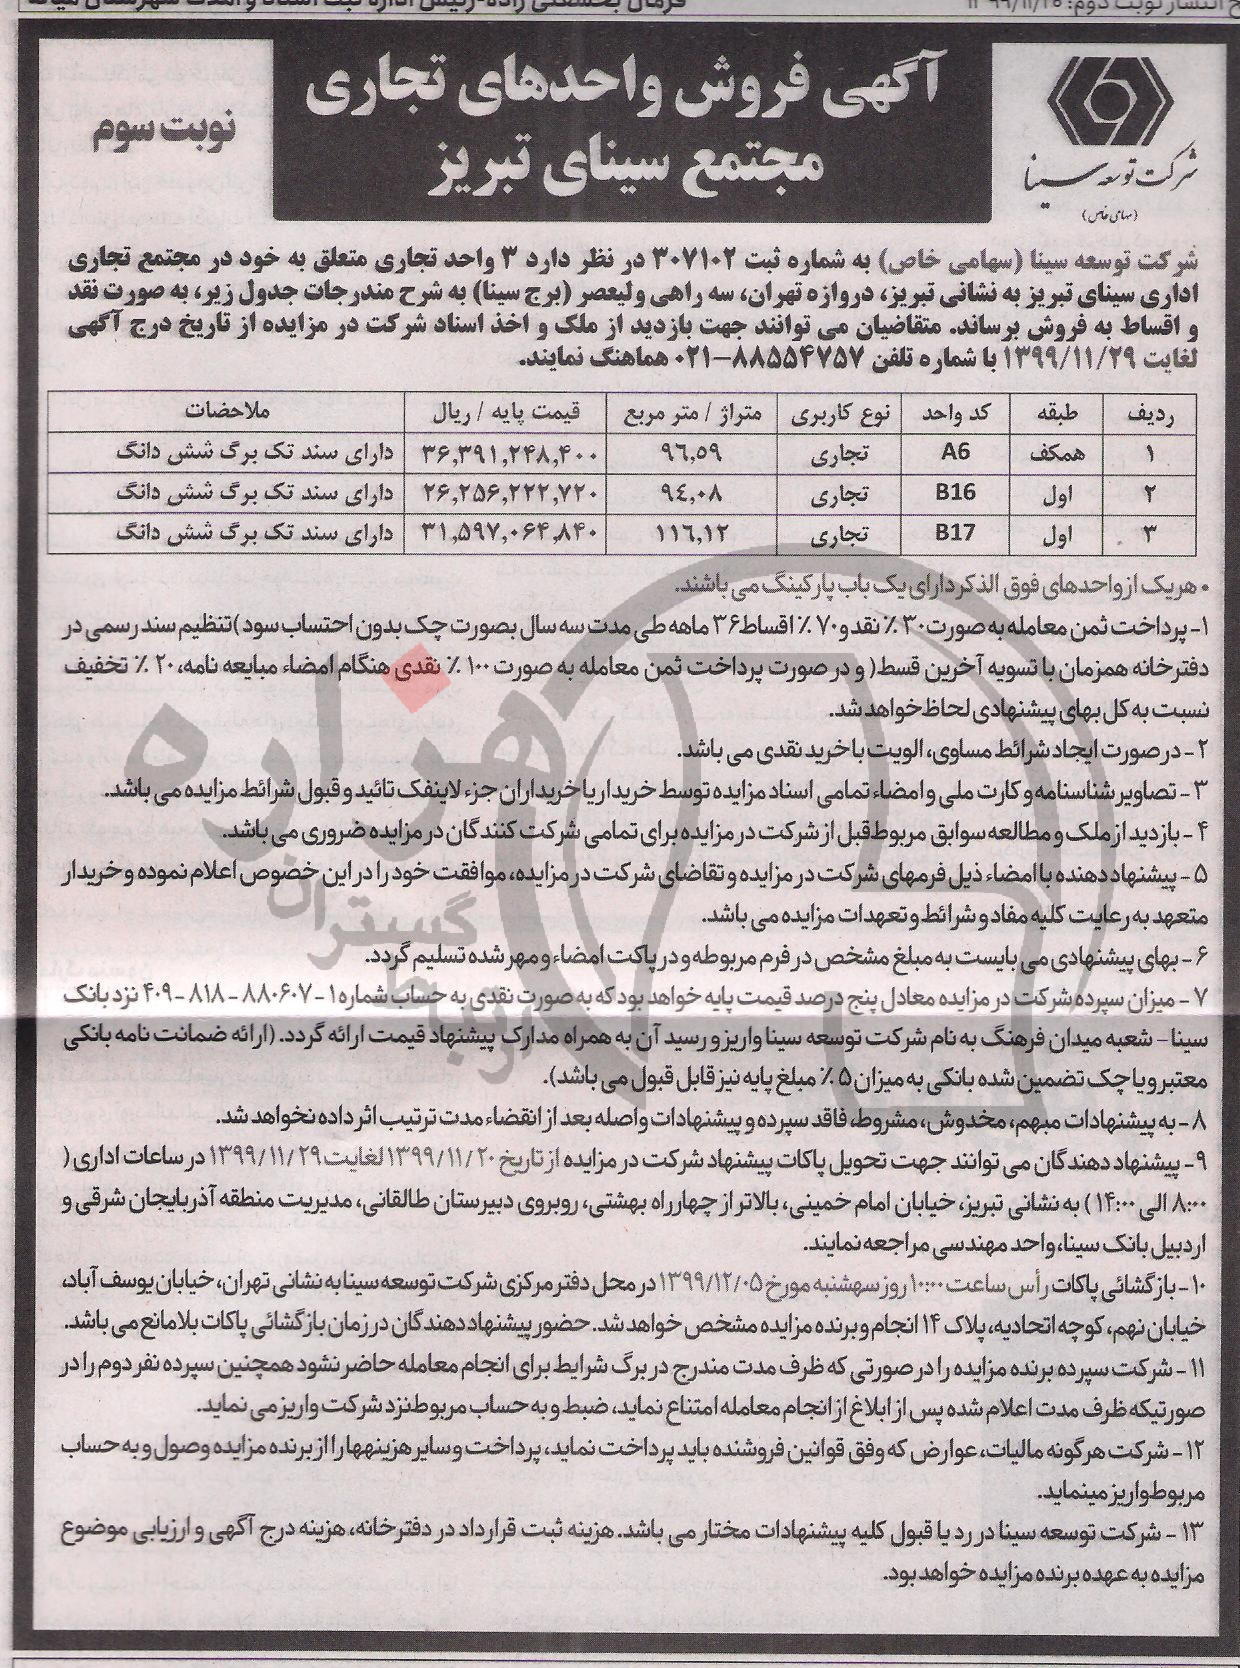 آگهی فروش واحدهای تجاری
مجتمع سینای تبریز
نوبت سوم
شرکت توسعه سینا
(سهامی خاص)
شرکت توسعه سینا (سهامی خاص) به شماره ثبت ۳۰۷۱۰۲ در نظر دارد ۳ واحد تجاری متعلق به خود در مجتمع تجاری
اداری سینای تبریز به نشانی تبریز، دروازه تهران، سه راهی ولیعصر (برج سینا) به شرح مندرجات جدول زیر، به صورت نقد
و اقساط به فروش برساند. متقاضیان می توانند جهت بازدید از ملک و اخذ اسناد شرکت در مزایده از تاریخ درج آگهی
لغایت ۱۳۹۹/۱۱/۲۹ با شماره تلفن ۸۸۵۵۴۷۵۷-۰۲۱ هماهنگ نمایند.
ردیف طبقه کد واحد نوع کاربری متراژ / متر مربع قیمت پایه / ریال ملاحضات
۱ همکف A6 تجاری ۹۶,۵۹ ۳۶,۳۹۱,۲۴۸,۴۰۰ دارای سند تک برگ شش دانگ
۲ اول B16 تجاری ۹۴,۰۸ ۲۶,۲۵۶,۲۲۲,۷۲۰ دارای سند تک برگ شش دانگ
۳ اول B17 تجاری ۱۱۶,۱۲ ۳۱,۵۹۷,۰۶۴,۸۴۰ دارای سند تک برگ شش دانگ
• هر یک از واحدهای فوق الذکر دارای یک باب پارکینگ می باشند.
۱- پرداخت ثمن معامله به صورت ۳۰ ٪ نقد و ۷۰ ٪ اقساط ۳۶ ماهه طی مدت سه سال بصورت چک بدون احتساب سود )تنظیم سند رسمی در
دفترخانه همزمان با تسویه آخرین قسط( و در صورت پرداخت ثمن معامله به صورت ۱۰۰ ٪ نقدی هنگام امضاء مبایعه نامه، ۲۰ ٪ تخفیف
نسبت به کل بهای پیشنهادی لحاظ خواهد شد.
۲ - در صورت ایجاد شرائط مساوی، الویت با خرید نقدی می باشد.
۳ - تصاویر شناسنامه و کارت ملی و امضاء تمامی اسناد مزایده توسط خریدار یا خریداران جزء لاینفک تائید و قبول شرائط مزایده می باشد.
۴ - بازدید از ملک و مطالعه سوابق مربوط قبل از شرکت در مزایده برای تمامی شرکت کنندگان در مزایده ضروری می باشد.
۵ - پیشنهاد دهنده با امضاء ذیل فرمهای شرکت در مزایده و تقاضای شرکت در مزایده، موافقت خود را در این خصوص اعلام نموده و خریدار
متعهد به رعایت کلیه مفاد و شرائط و تعهدات مزایده می باشد.
۶ - بهای پیشنهادی می بایست به مبلغ مشخص در فرم مربوطه و در پاکت امضاء و مهر شده تسلیم گردد.
۷ - میزان سپرده شرکت در مزایده معادل پنج درصد قیمت پایه خواهد بود که به صورت نقدی به حساب شماره ۱ - ۸۸۰۶۰۷ - ۸۱۸ - ۴۰۹ نزد بانک
سینا - شعبه میدان فرهنگ به نام شرکت توسعه سینا واریز و رسید آن به همراه مدارک پیشنهاد قیمت ارائه گردد. (ارائه ضمانت نامه بانکی
معتبر و یا چک تضمین شده بانکی به میزان ۵ ٪ مبلغ پایه نیز قابل قبول می باشد).
۸ - به پیشنهادات مبهم، مخدوش، مشروط، فاقد سپرده و پیشنهادات واصله بعد از انقضاء مدت ترتیب اثر داده نخواهد شد.
۹- پیشنهاد دهندگان می توانند جهت تحویل پاکات پیشنهاد شرکت در مزایده از تاریخ ۱۳۹۹/۱۱/۲۰ لغایت ۱۳۹۹/۱۱/۲۹ در ساعات اداری (
۸:۰۰ الی ۱۴:۰۰ ) به نشانی تبریز، خیابان امام خمینی، بالاتر از چهارراه بهشتی، روبروی دبیرستان طالقانی، مدیریت منطقه آذربایجان شرقی و
اردبیل بانک سینا، واحد مهندسی مراجعه نمایند.
۱۰ - بازگشائی پاکات رأس ساعت ۱۰:۰۰ روز سهشنبه مورخ ۱۳۹۹/۱۲/۰۵ در محل دفتر مرکزی شرکت توسعه سینا به نشانی تهران، خیابان یوسف آباد،
خیابان نهم، کوچه اتحادیه، پلاک ۱۴ انجام و برنده مزایده مشخص خواهد شد. حضور پیشنهاد دهندگان در زمان بازگشائی پاکات بلامانع می باشد.
۱۱ - شرکت سپرده برنده مزایده را در صورتی که ظرف مدت مندرج در برگ شرایط برای انجام معامله حاضر نشود همچنین سپرده نفر دوم را در
صورتیکه ظرف مدت اعلام شده پس از ابلاغ از انجام معامله امتناع نماید، ضبط و به حساب مربوط نزد شرکت واریز می نماید.
۱۲ - شرکت هرگونه مالیات، عوارض که وفق قوانین فروشنده باید پرداخت نماید، پرداخت و سایر هزینهها را از برنده مزایده وصول و به حساب
مربوط واریز مینماید.
۱۳ - شرکت توسعه سینا در رد یا قبول کلیه پیشنهادات مختار می باشد. هزینه ثبت قرارداد در دفترخانه، هزینه درج آگهی و ارزیابی موضوع
مزایده به عهده برنده مزایده خواهد بود.
هزاره
گستران